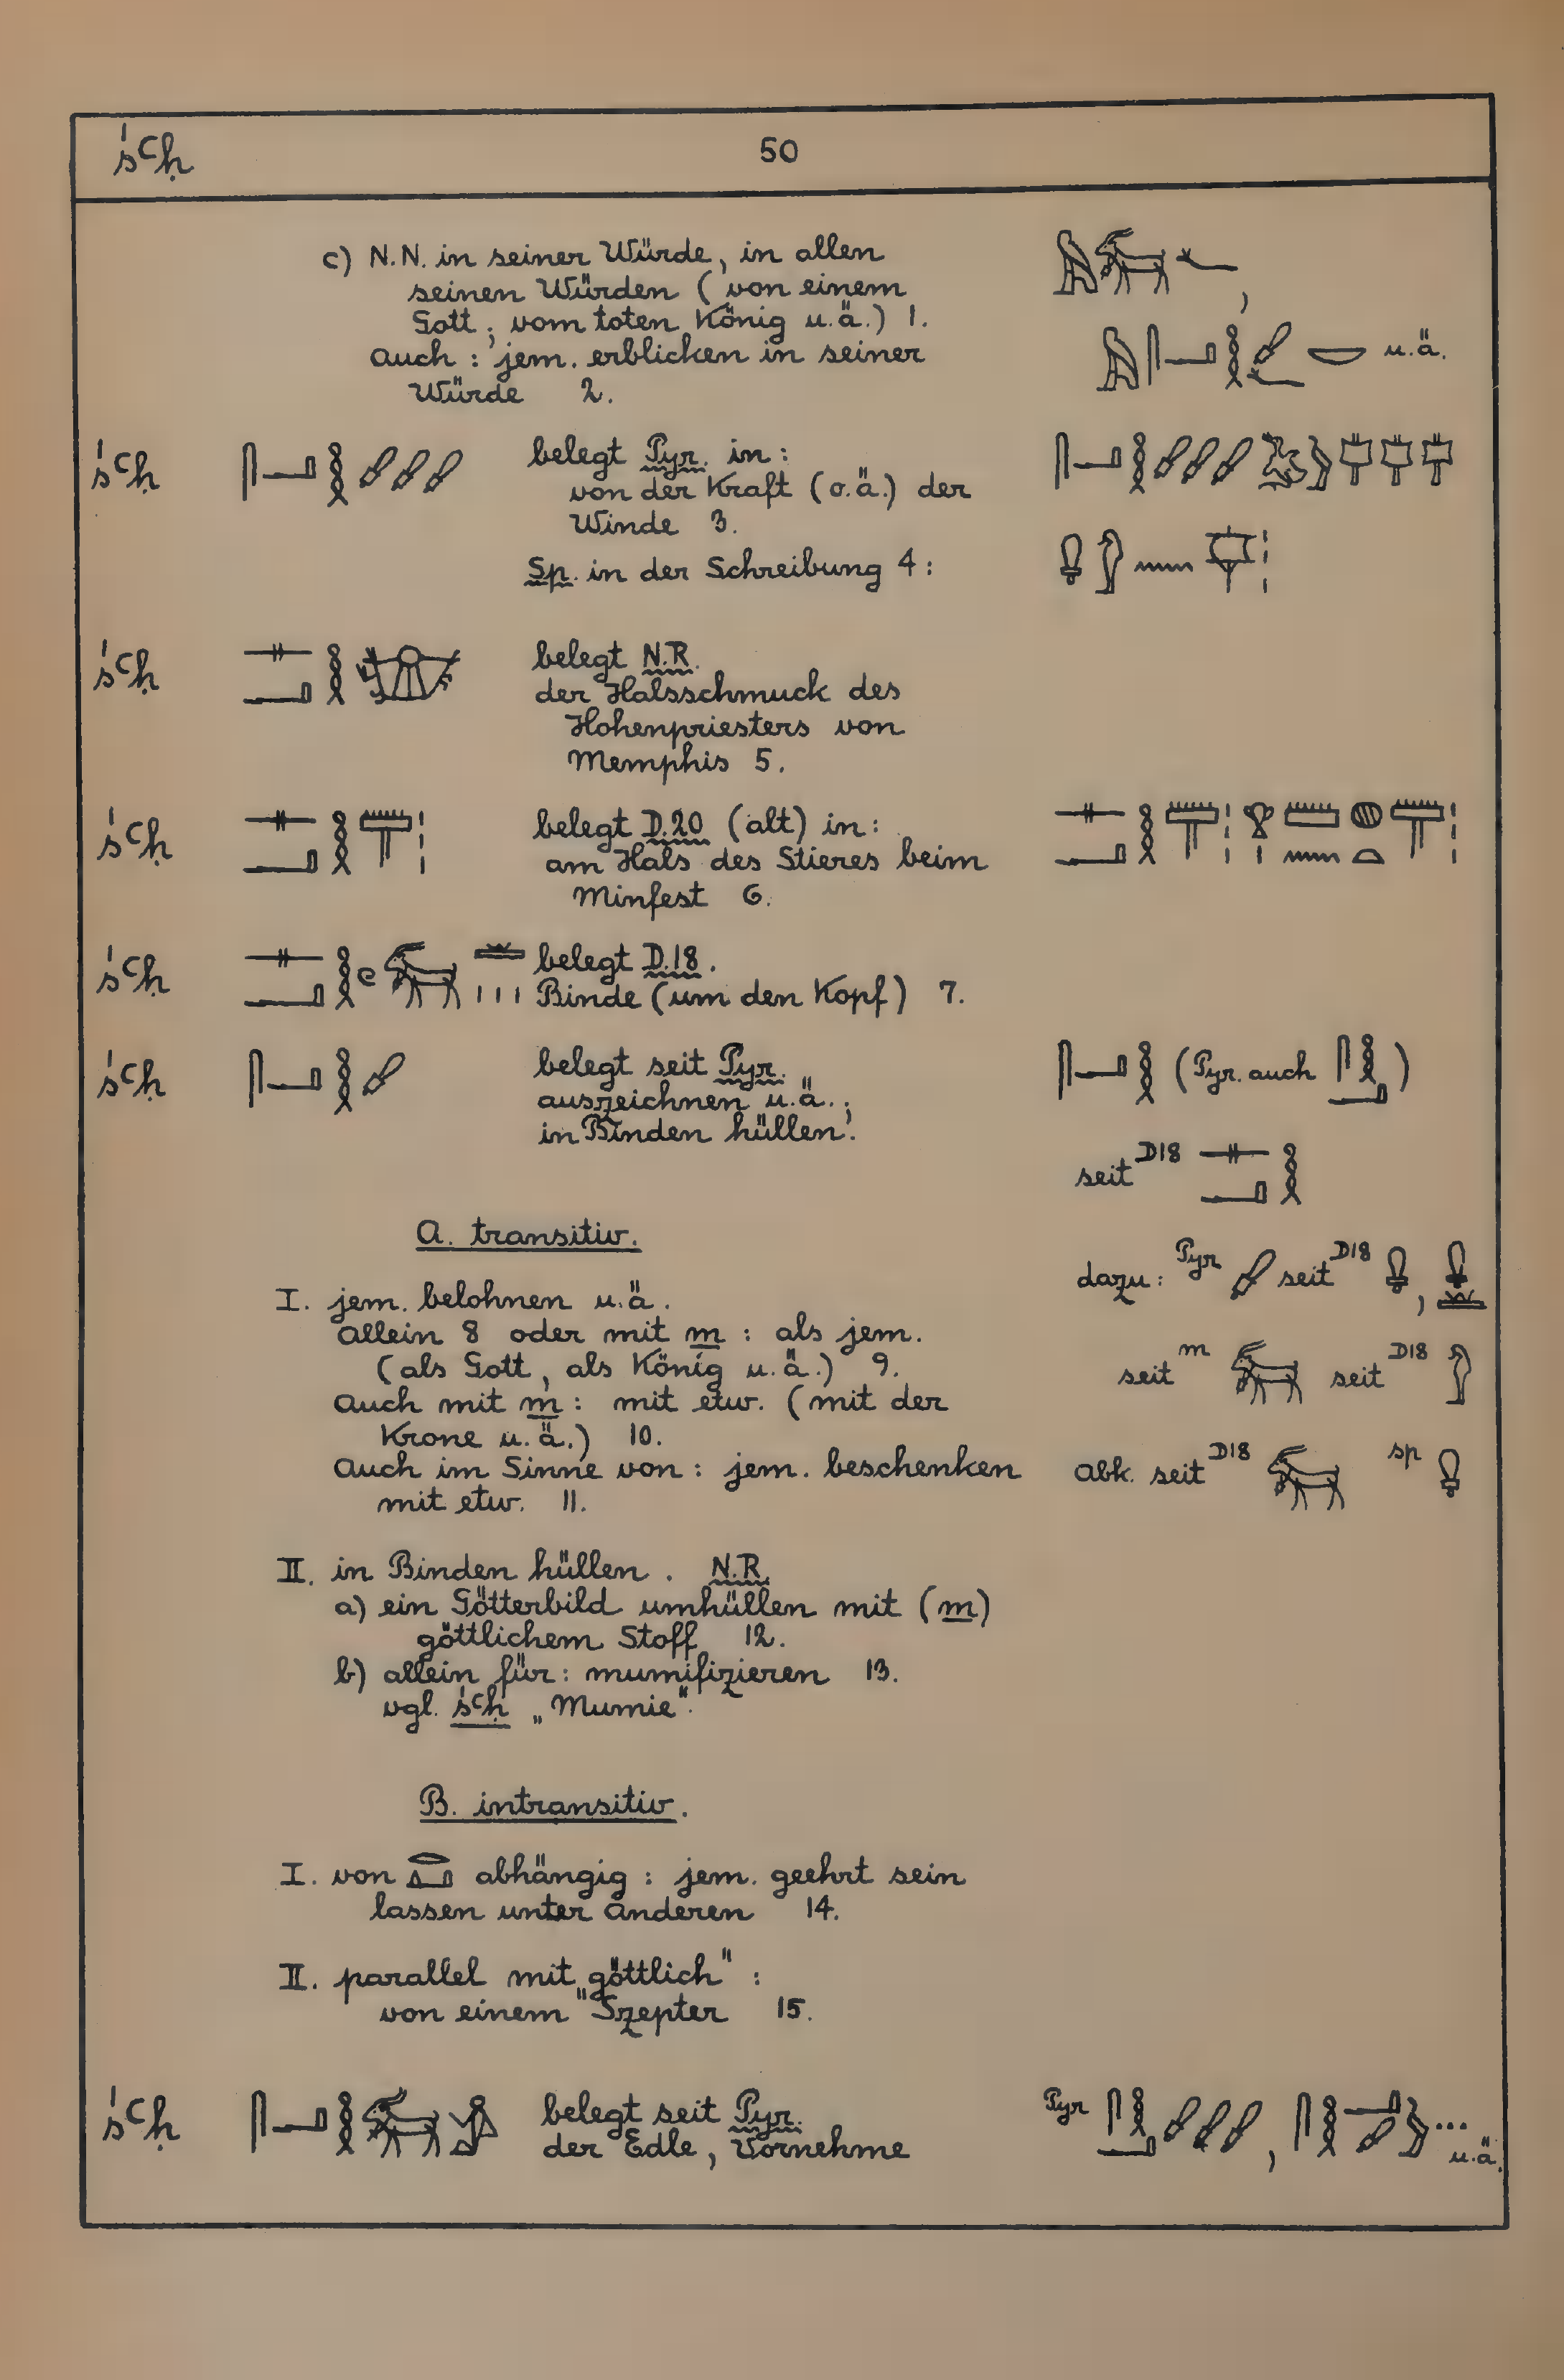 śꜥḥ 50
c) N.N. in seiner Würde, in allen
seinen Würden (von einem
Gott; vom toten König u.ä.) 1.
Auch: jem. erblicken in seiner
Würde 2.
u.ä.
śꜥḥ belegt Pyr. in:
von der Kraft (o.ä.) der
Winde 3.
Sp. in der Schreibung 4:
śꜥḥ belegt N.R.
der Halsschmuck des
Hohenpriesters von
Memphis 5.
śꜥḥ belegt D.20 (alt) in:
am Hals des Stieres beim
Minfest 6.
śꜥḥ belegt D.18.
Binde (um den Kopf) 7.
śꜥḥ belegt seit Pyr.
auszeichnen u.ä.;
in Binden hüllen.
(Pyr. auch )
seit D18
dazu: Pyr seit D18 ,
seit m seit D18
Abk. seit D18 sp
A. transitiv.
I. jem. belohnen u.ä.
Allein 8 oder mit m : als jem.
(als Gott, als König u.ä.) 9.
Auch mit m : mit etw. (mit der
Krone u.ä.) 10.
Auch im Sinne von: jem. beschenken
mit etw. 11.
II. in Binden hüllen. N.R.
a) ein Götterbild umhüllen mit (m)
göttlichem Stoff 12.
b) allein für: mumifizieren 13.
vgl. śꜥḥ „Mumie".
B. intransitiv.
I. von abhängig: jem. geehrt sein
lassen unter Anderen 14.
II. parallel mit „göttlich":
von einem Szepter 15.
śꜥḥ belegt seit Pyr.
der Edle, Vornehme
Pyr , ...
u.ä.